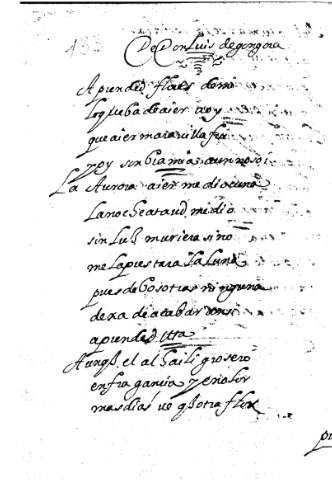 De Don Luis de gongora
Aprended flores de mi
lo que ba de aier a oy
que aier marauilla fui
y oy sonbra mia aun no soi
La Aurora aier me dio cuna
La noche ataud me dio
sin luz muriera si no
me la prestara la luna
pues de bosotras ninguna
dexa de acabar ansi
aprended etta
Aunq̃ el alhaili grosero
en fragancia y en olor
mas dias ue q̃ otra flor